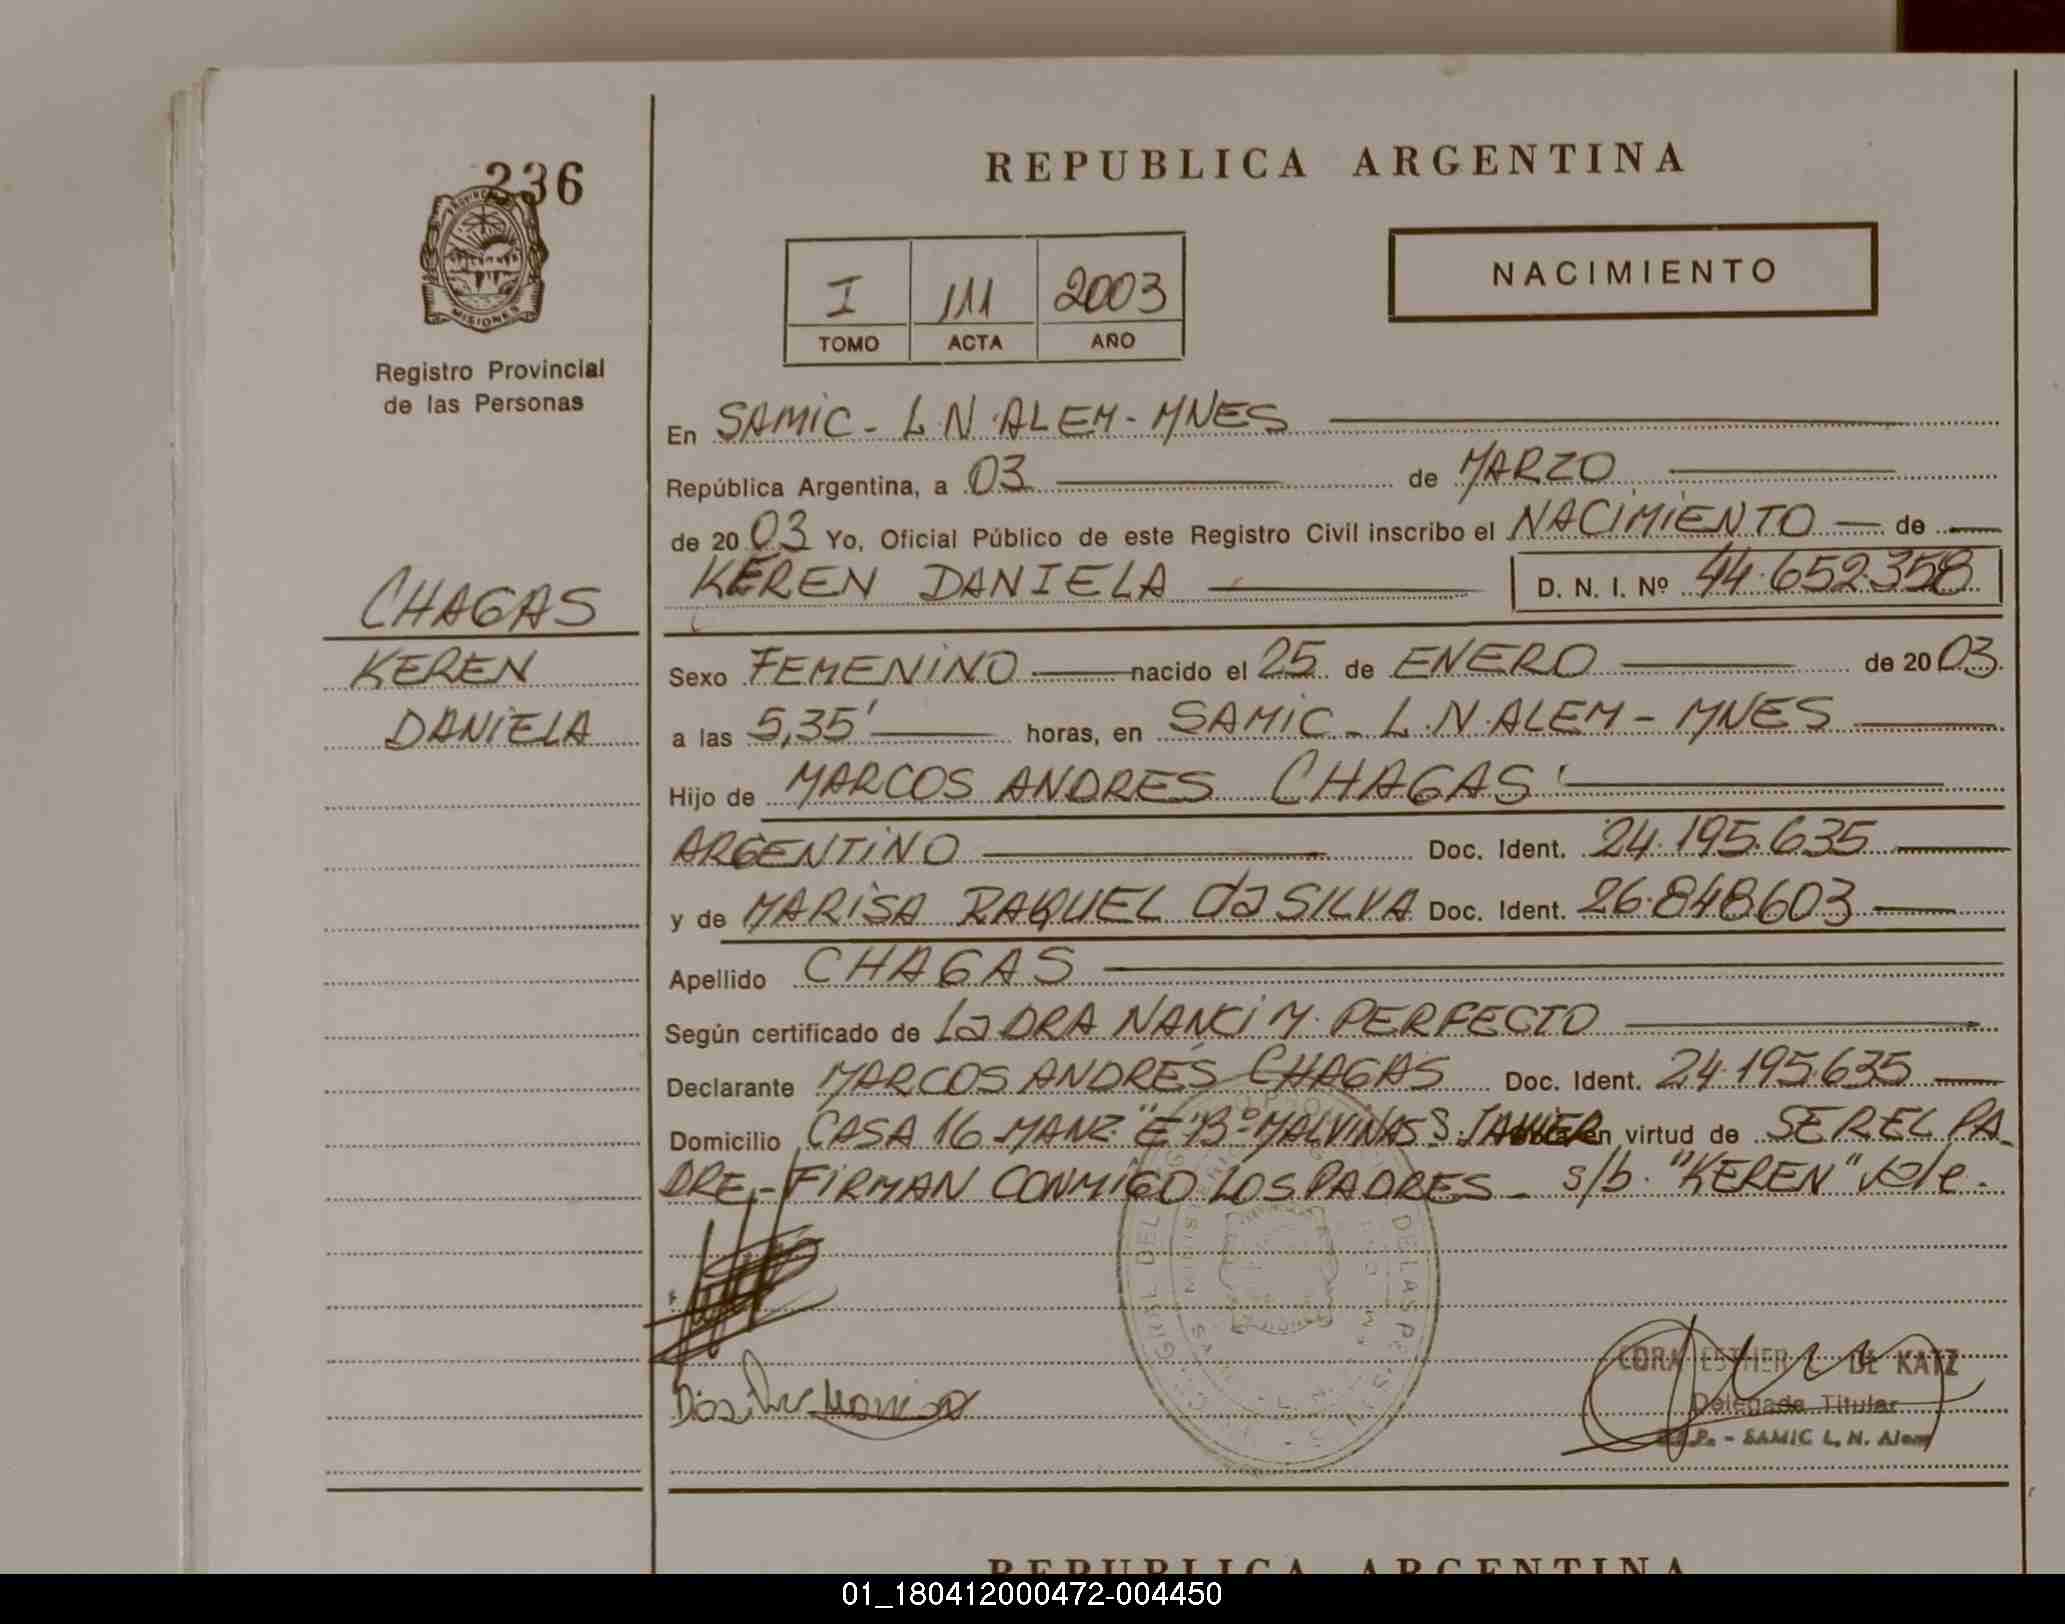 236
MISIONES
Registro Provincial
de las Personas
CHAGAS
KEREN
DANIELA
REPUBLICA ARGENTINA
I 111 2003
TOMO ACTA AÑO
NACIMIENTO
En SAMIC - L.N.ALEM - MNES
República Argentina, a 03 de MARZO
de 2003 Yo, Oficial Público de este Registro Civil inscribo el NACIMIENTO de
KEREN DANIELA D. N. I. Nº 44.652.358
Sexo FEMENINO nacido el 25 de ENERO de 2003
a las 5,35' horas, en SAMIC - L.N.ALEM - MNES
Hijo de MARCOS ANDRES CHAGAS
ARGENTINO Doc. Ident. 24.195.635
y de MARISA RAQUEL da SILVA Doc. Ident. 26.848.603
Apellido CHAGAS
Según certificado de La DRA NANCI M. PERFECTO
Declarante MARCOS ANDRÉS CHAGAS Doc. Ident. 24.195.635
Domicilio CASA 16 MANZ "E" Bº MALVINAS S. JAVIER en virtud de SER EL PA
DRE - FIRMAN CONMIGO LOS PADRES - s/b. "KEREN" vale.
ESTHER DE KATZ
Delegada Titular
SAMIC L. N. Alem
REPUBLICA ARGENTINA
01_180412000472-004450